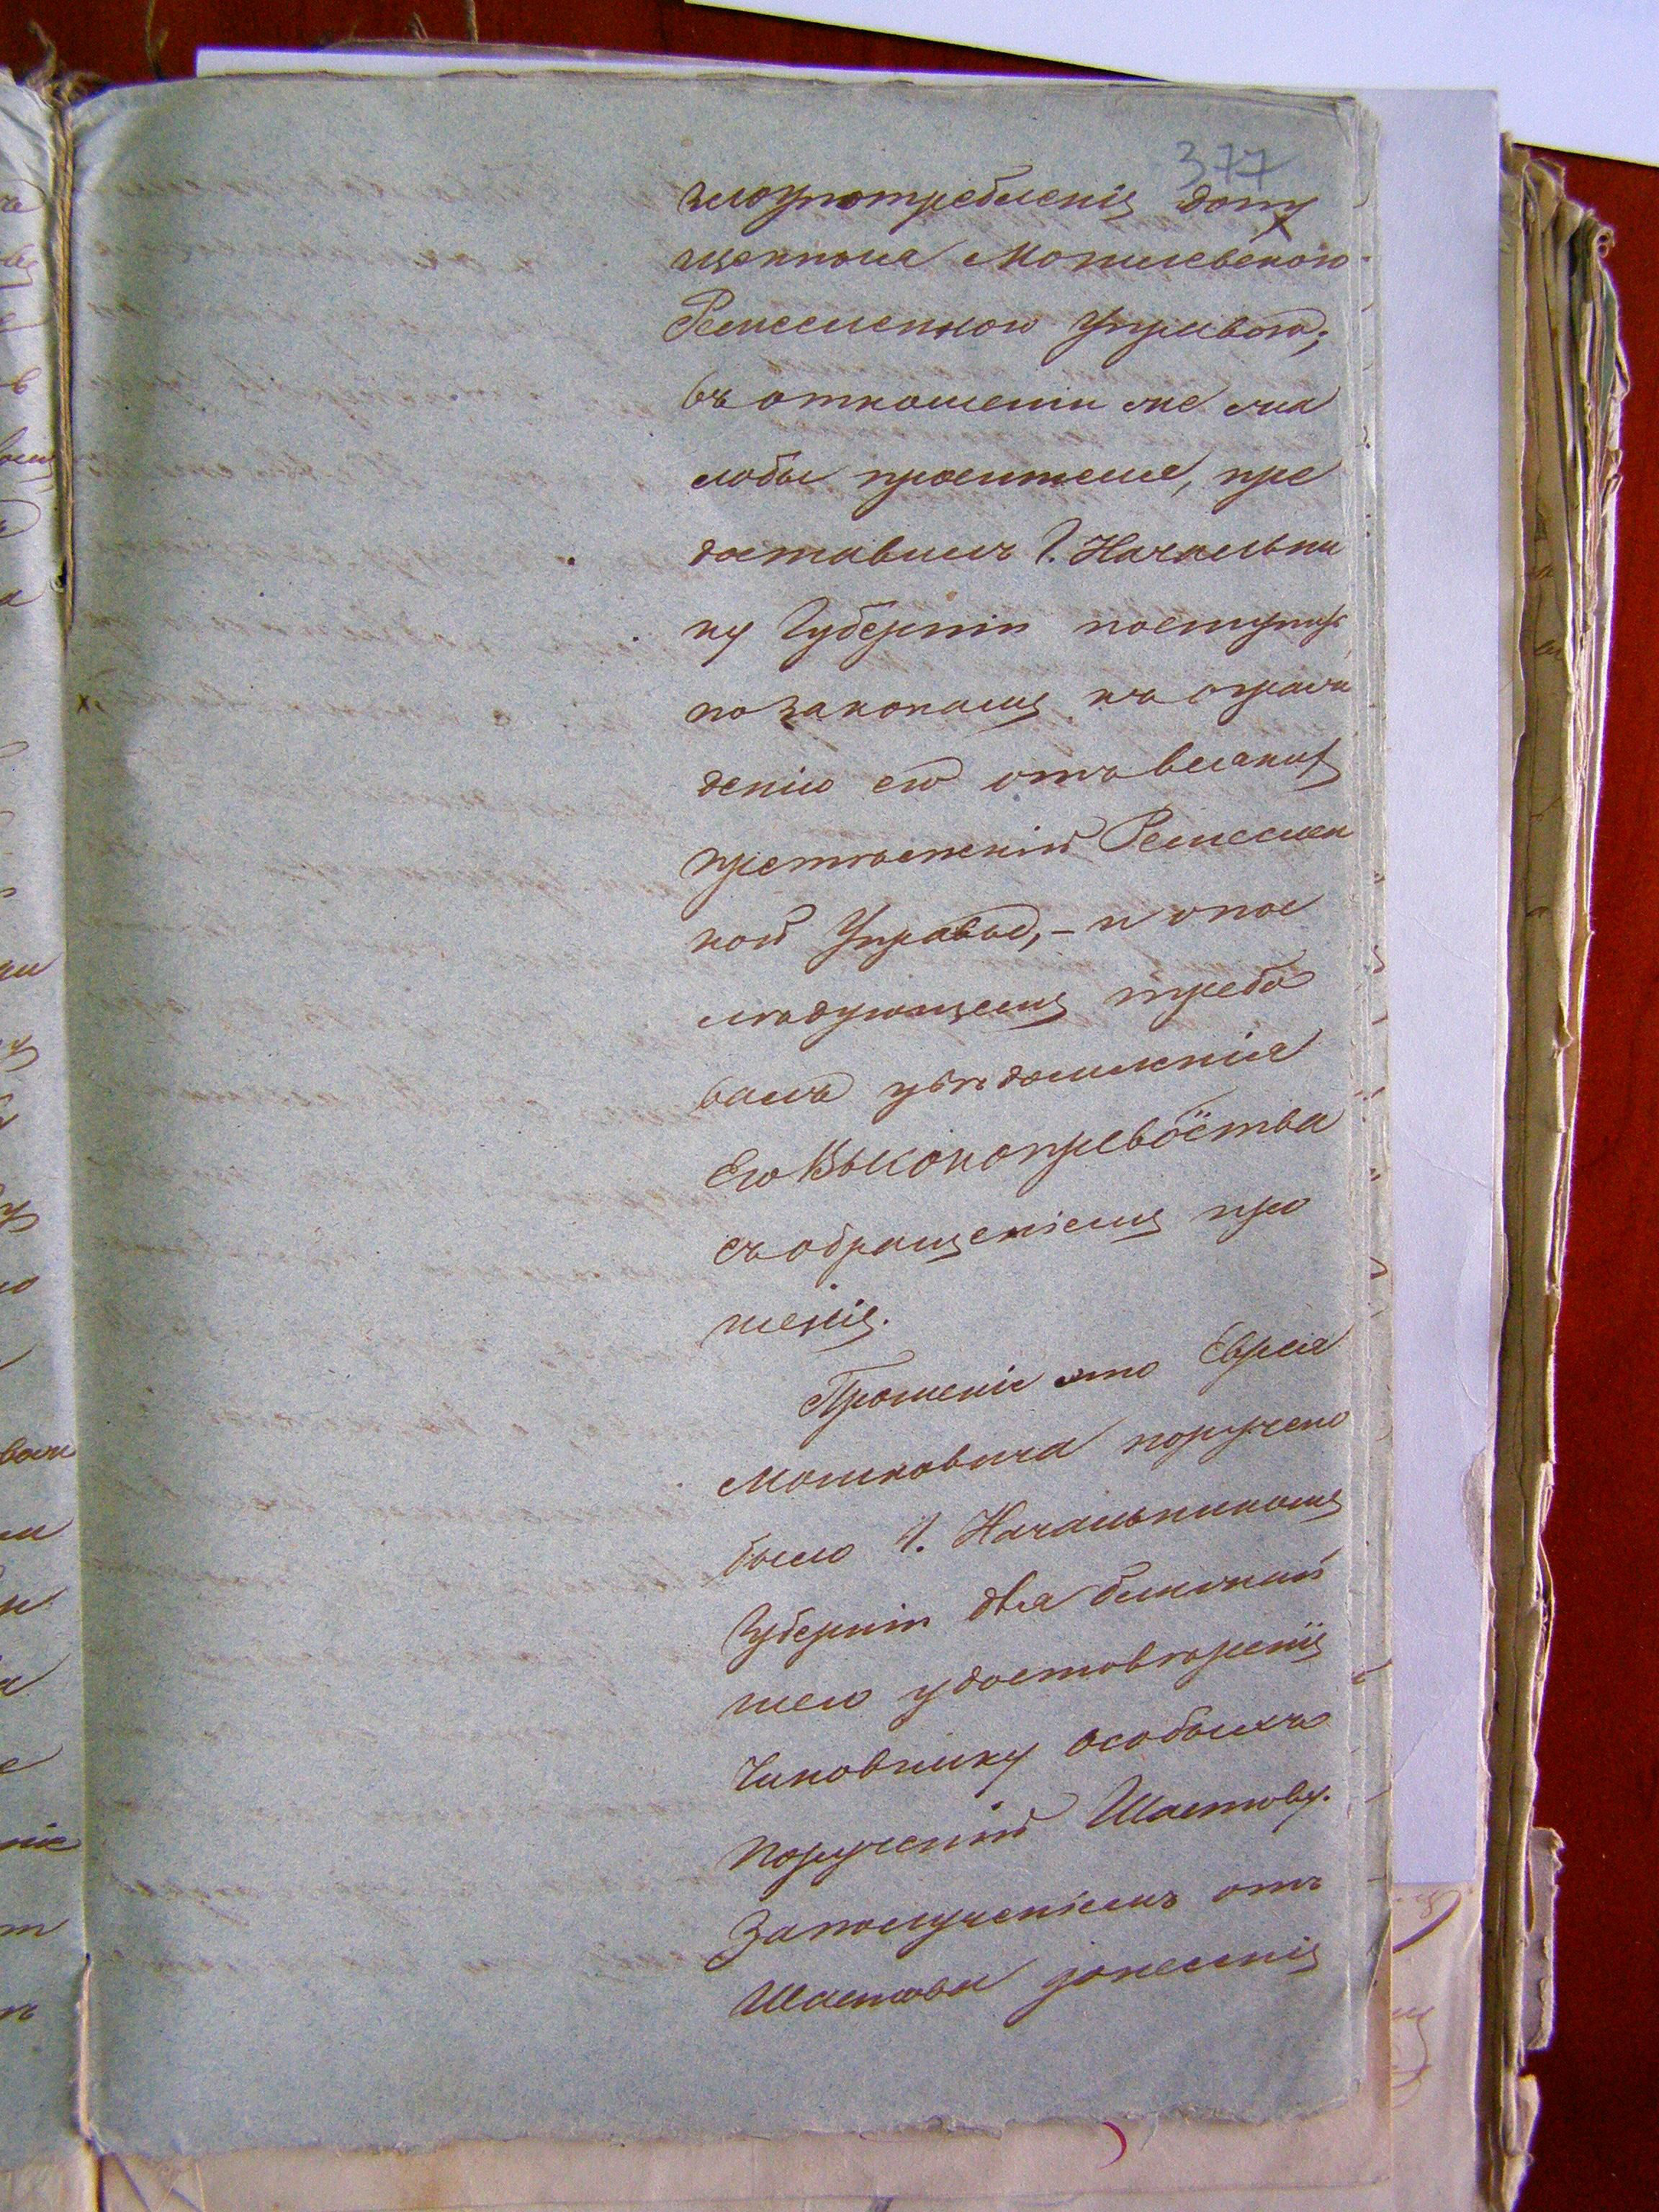 377
злоупотребленія допу
щеннымъ Могилевскою
Ремесленною Управою;
въ отношеніи же жа
лобы просителя, пре
доставилъ Г. Начальни
ку Губерніи поступить
по законамъ къ огражи
денію его отъ всякихъ
притѣсненій Ремеслен
ной Управы, - и о пос
лѣдующемъ требо
валъ увѣдомленія
Его Высокопревоства
съ обращеніемъ про
шенія.
Прошеніе это Еврея
Мошковича поручено
было Г. Начальникомъ
Губерніи для ближай
шего удостовѣренія
Чиновнику Особыхъ
порученій Шастову.
За полученіемъ отъ
Шастова донесенія